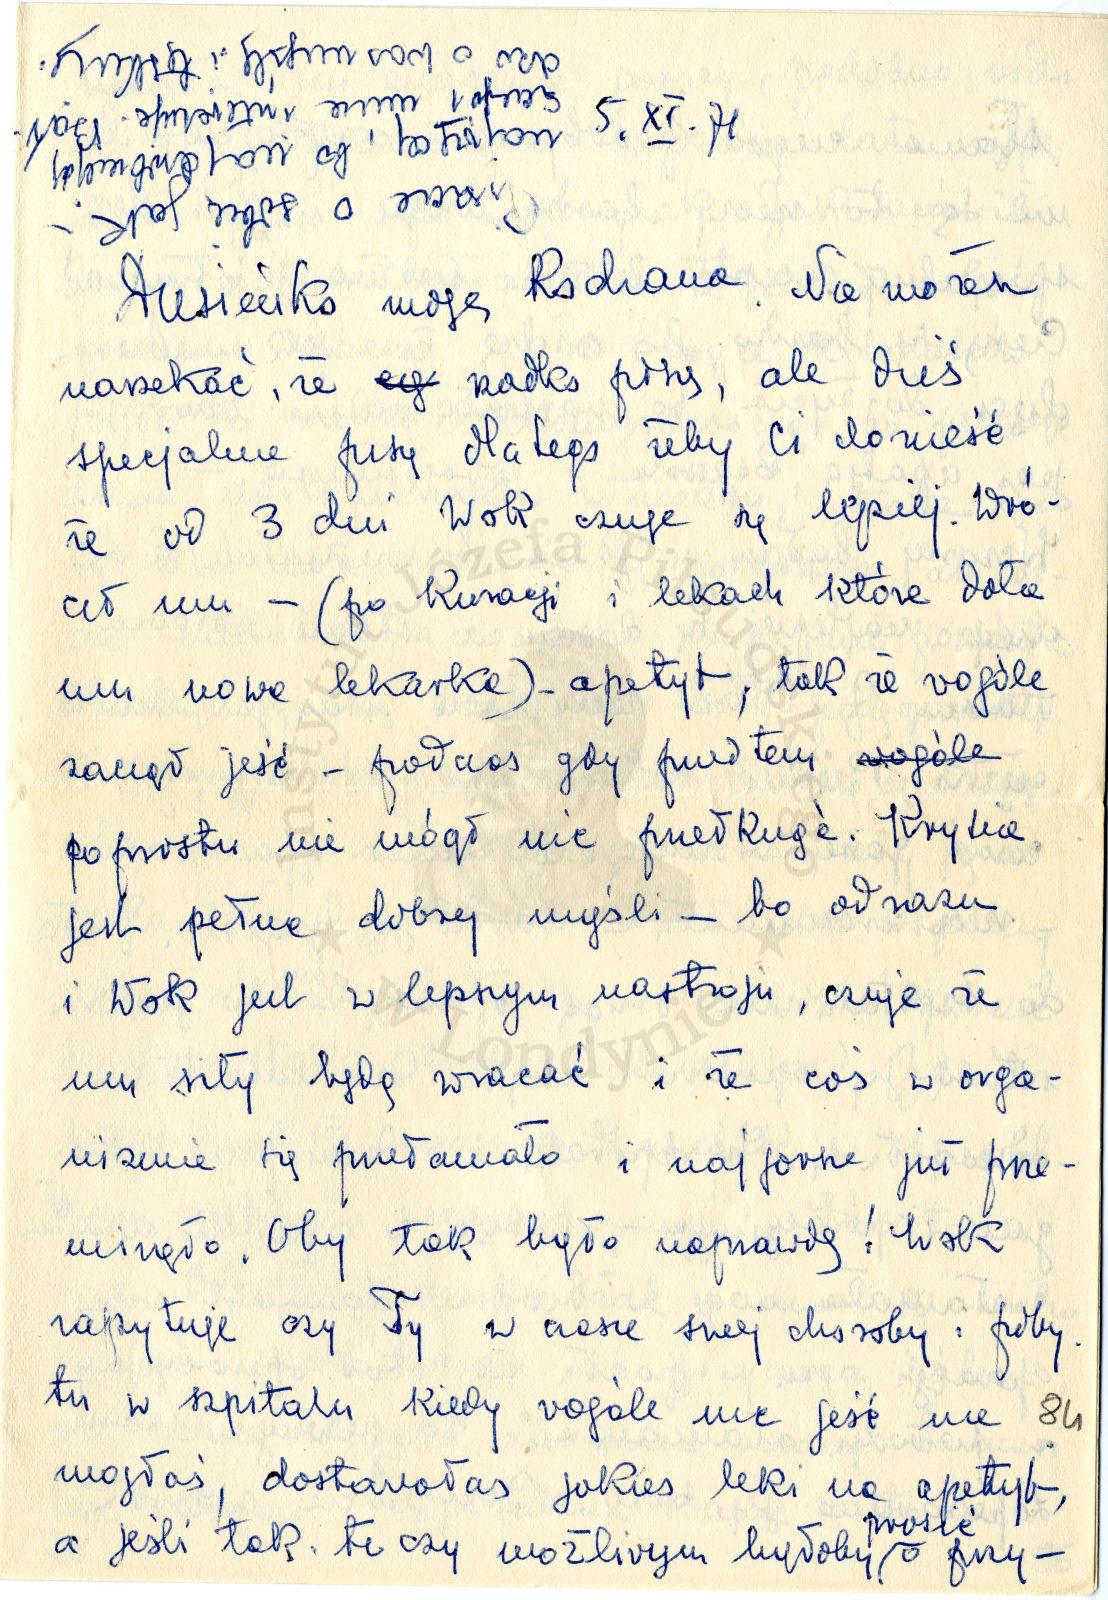 5. XI. 71
Musieńko moja Kochana. Nie możesz
narzekać, że rzadko piszę, ale dziś
specjalnie piszę dlatego żeby Ci donieść
że od 3 dni Wok czuje się lepiej. Wró-
cił mu – (po kuracji i lekach które dała
mu nowa lekarka) – apetyt, tak że wogóle
zaczął jeść – podczas gdy przedtem wogóle
poprostu nie mógł nic przełknąć. Krysia
jest pełna dobrej myśli – bo odrazu
i Wok jest w lepszym nastroju, czuje że
mu siły będą wracać i że coś w orga-
nizmie się przełamało i najgorsze już prze-
minęło. Oby tak było naprawdę! Wok
zapytuje czy Ty w czasie swej choroby i poby.
tu w szpitalu kiedy wogóle nic jeść nie
mogłaś, dostawałaś jakieś leki na apetyt,
a jeśli tak. to czy możliwym byłoby prosić o przy-
84
pisze o sobie jak
najwięcej, bo to
mnie interesuje.
o was myślę i tęsknię.
Instytut Józefa Piłsudskiego
w Londynie